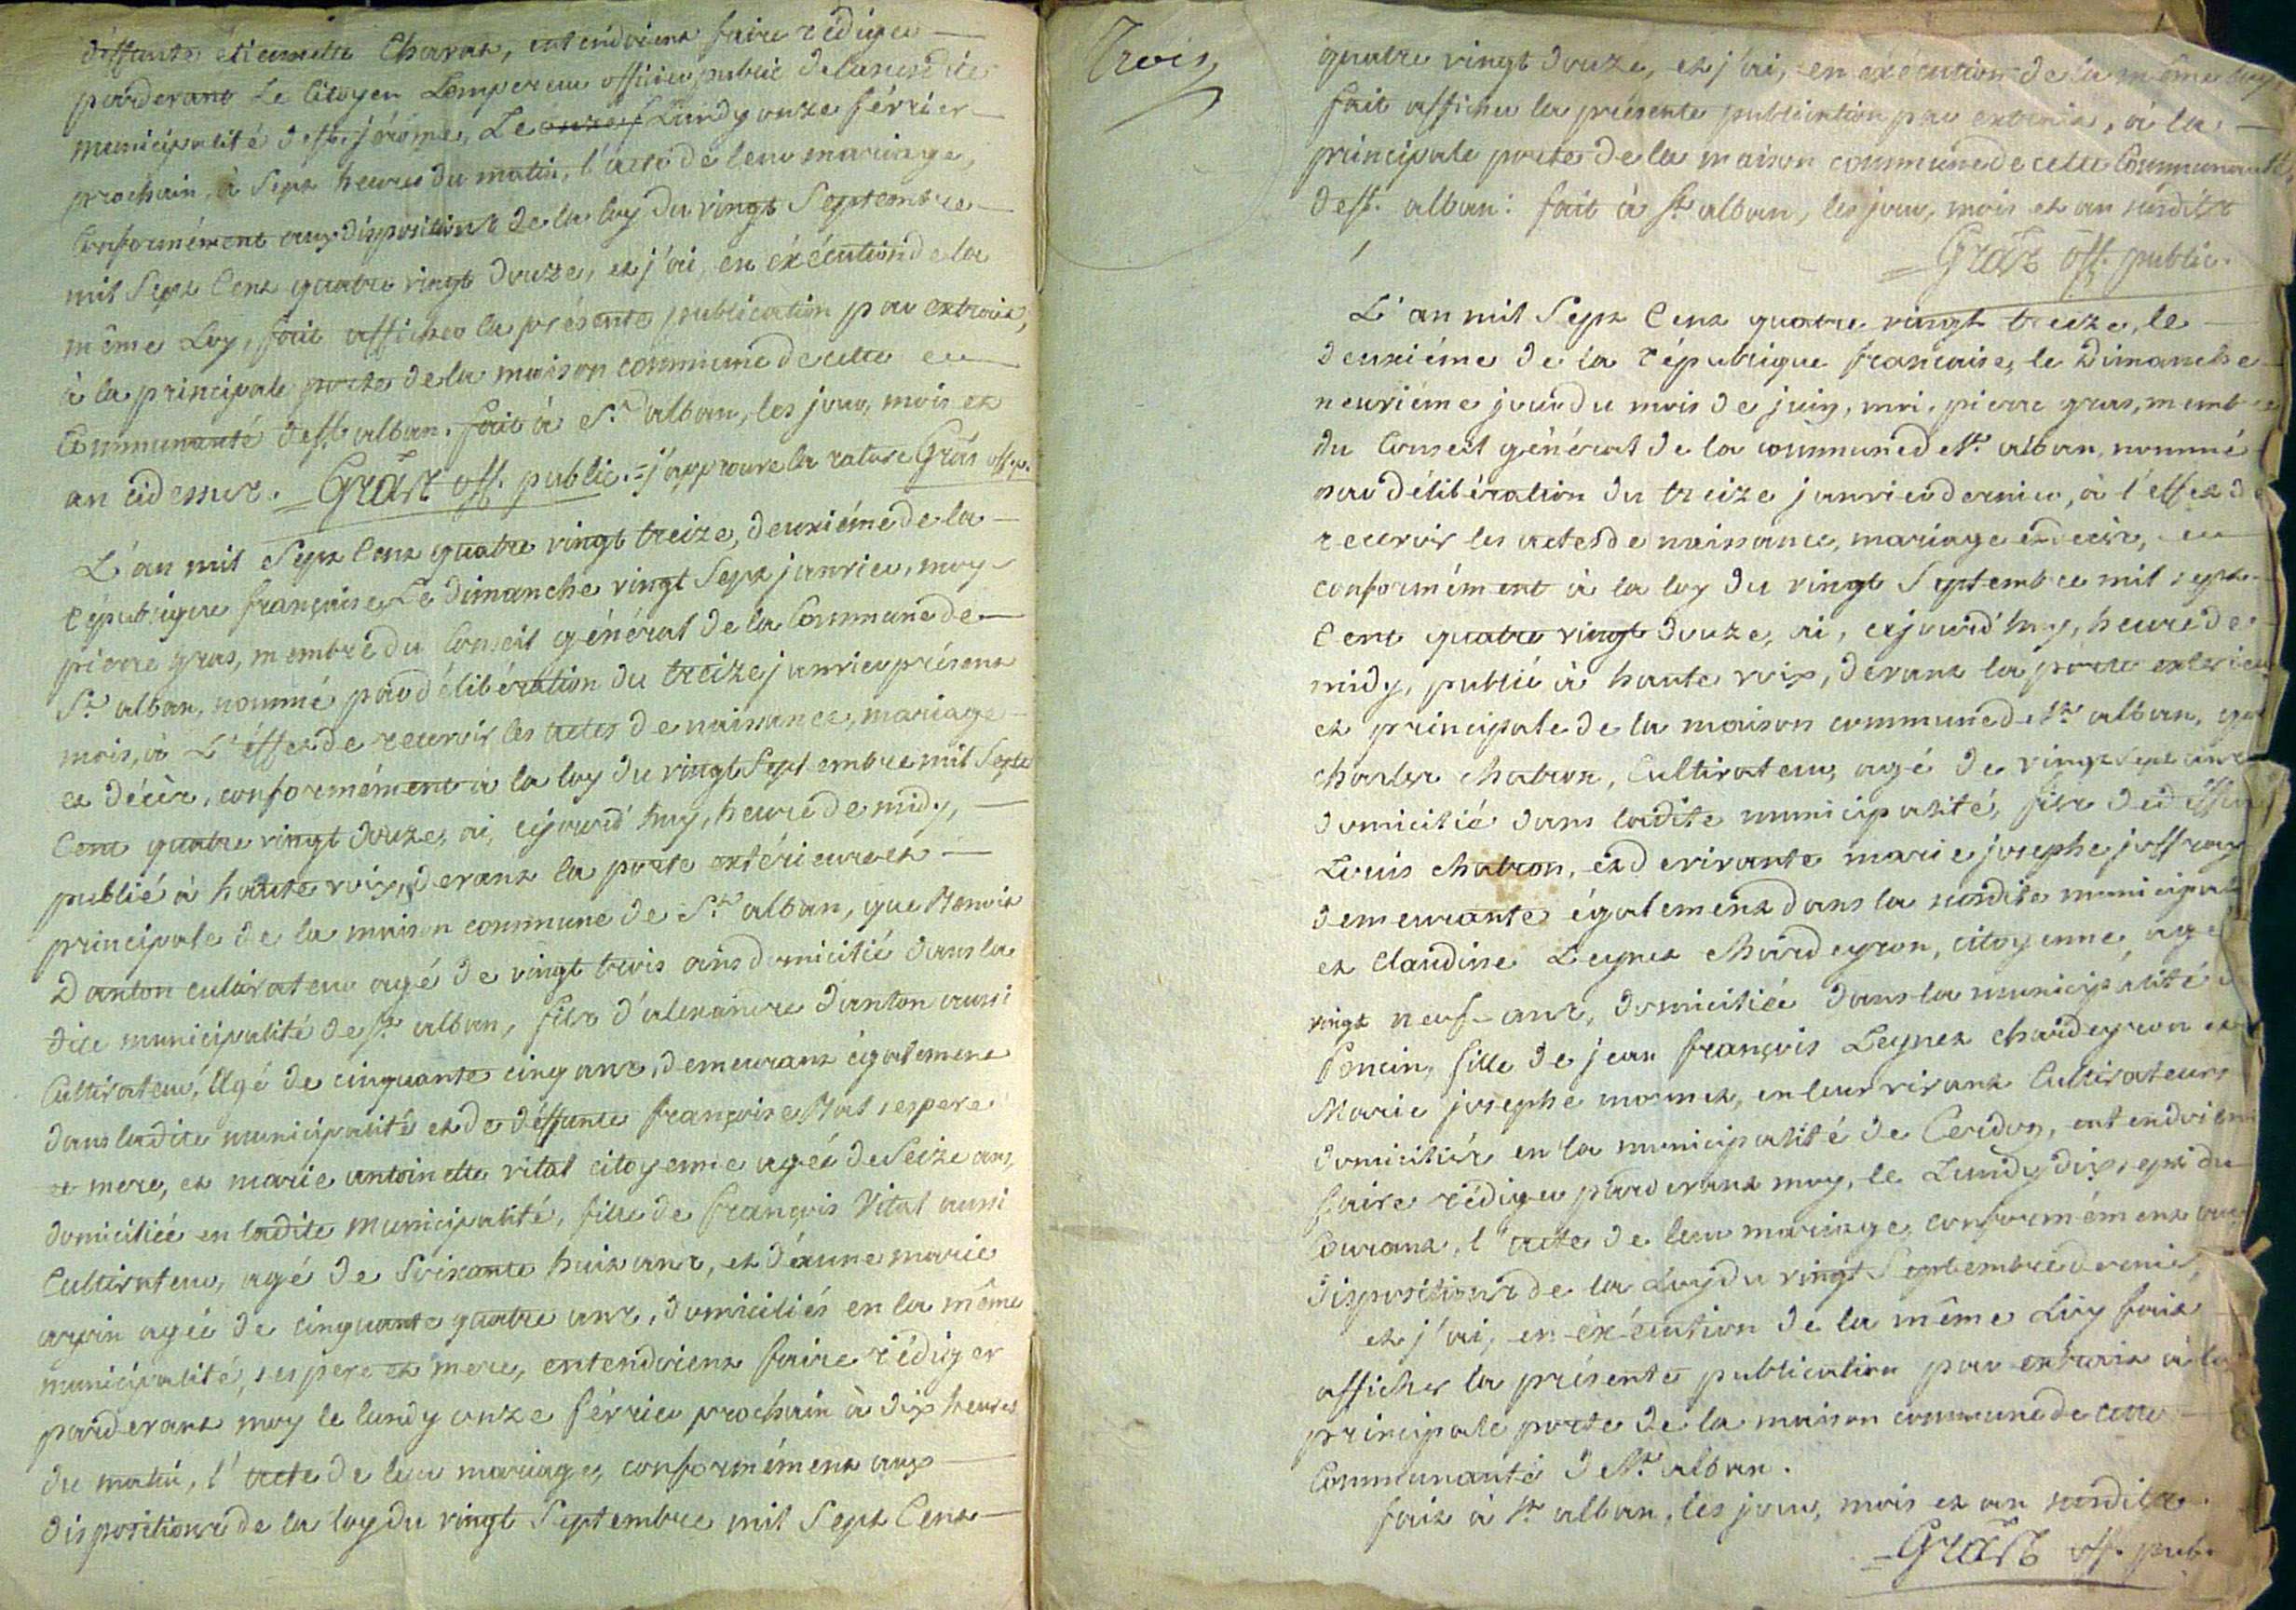 déffunte étiennette Charat, entendoient faire rédiger
pardevant Le Citoyen Lempereur officier public de la susdite
municipalité de st. jérôme, Le Lundy onze février
prochain, à Sept heures du matin, l'acte de leur mariage,
Conformément aux dispositions de la loy du vingt Septembre
mil Sept Cent quatre vingt douze, et j'ai, en éxécution de la
même Loy, fait afficher la présente publication par extrait,
à la principale porte de la maison commune de cette
Communauté de st. alban. fait à St. alban, les jour, mois et
an cidessus. Gras off. public. = j'approuve la rature Gras off. p.
L'an mil Sept Cent quatre vingt treize, deuxiéme de la
République française, Le dimanche vingt Sept janvier, moy
pierre gras, membre du Conseil général de la Commune de
St. alban, nommé par délibération du treize janvier présent
mois, à L'éffet de recevoir les actes de naissance, mariage
et décès, conformément à la loy du vingt Septembre mil Sept
Cent quatre vingt douze, ai, cejourd'huy, heure de midy,
publié à haute voix, devant la porte extérieure et
principale de la maison commune de St. alban, que Benoit
Danton cultivateur agé de vingt trois ans domicilié dans la
dite municipalité de st. alban, fils d'alexandre danton aussi
Cultivateur, Agé de cinquante cinq ans, demeurant également
dans ladite municipalité et de déffunte françoise Bal, ses pere
et mere, et marie antoinette vital citoyenne agée de Seize ans,
domiciliée en ladite municipalité, fille de françois Vital aussi
Cultivateur, agé de Soixante huit ans, et d'anne marie
agée de cinquante quatre ans, domiciliés en la même
municipalité, ses pere et mere, entendoient faire rédiger
pardevant moy le lundy onze février prochain à dix heures
du matin, l'acte de leur mariage, conformément aux
dispositions de la loy du vingt Septembre mil Sept Cent
Trois
quatre vingt douze, et j'ai, en exécution de la même loy
fait afficher la présente publication par extrait, à la
principale porte de la maison commune de cette Communauté
de st. alban: fait à st. alban, les jour, mois et an susdits
Gras off. public.
L'an mil Sept Cent quatre vingt treize, le
deuxiéme de la république française, le Dimanche
neuviéme jour du mois de juin, moi, pierre gras, membre
du Conseil général de la commune de st. alban, nommé
par délibération du treize janvier dernier, à l'effet de
recevoir les actes de naissance, mariage et décès,
conformément à la loy du vingt Septembre mil sept
Cent quatre vingt douze, ai, cejourd'huy, heure de
midy, publié à haute voix, devant la porte exterieure
et principale de la maison commune de st. alban, que
charles chatron, Cultivateur, agé de vingt sept ans
domicilié dans ladite municipalité, fils de déffunt
Louis chatron, et de vivante marie josephe joffray
demeurante également dans la susdite municipalité
et Claudine Leynet Chardeyron, citoyenne agée
vingt neuf ans, domiciliée dans la municipalité de
Poncin, fille de jean françois Leynet chardeyron et
Marie josephe monnet, en leur vivant Cultivateurs
domiciliés en la municipalité de Cerdon, entendoient
faire rédiger pardevant moy, le Lundy dix sept du
Courant, l'acte de leur mariage, conformément aux
dispositions de la Loy du vingt Septembre dernier,
et j'ai, en éxécution de la même Loy fait
afficher la présente publication par extrait à la
principale porte de la maison commune de cette
Communauté de st. alban.
fait à st. alban, les jour, mois et an susdits.
Gras off. pub.